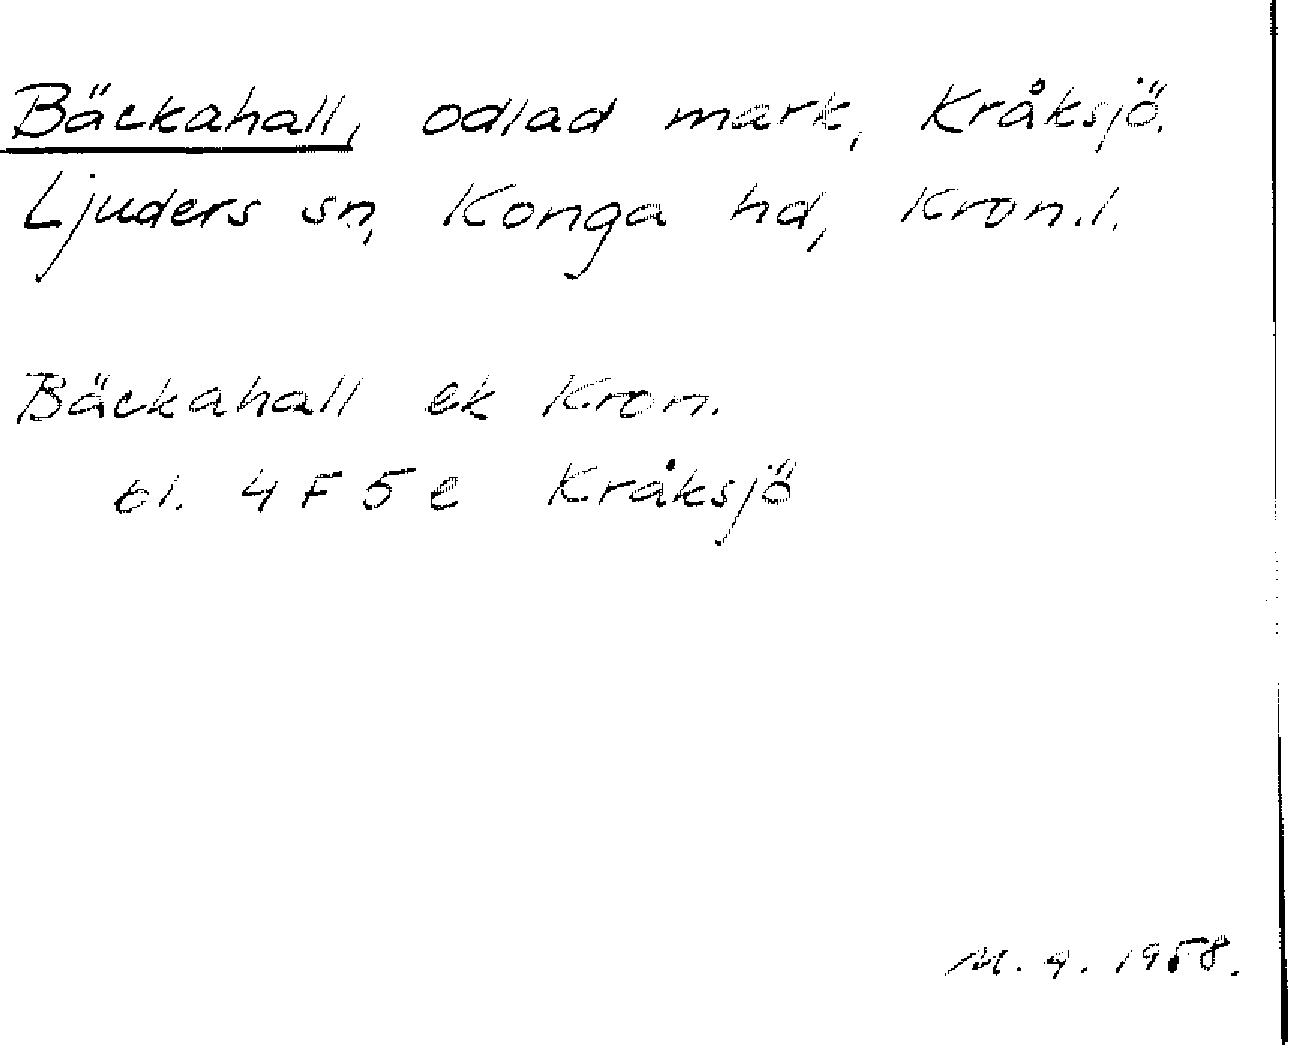 Bäckahall, odlad mark, Kråksjö.
Ljuders sn, Konga hd, Kron.l.
Bäckahall ek Kron.
bl. 4 F 5 e Kråksjö
M. A. 1958.